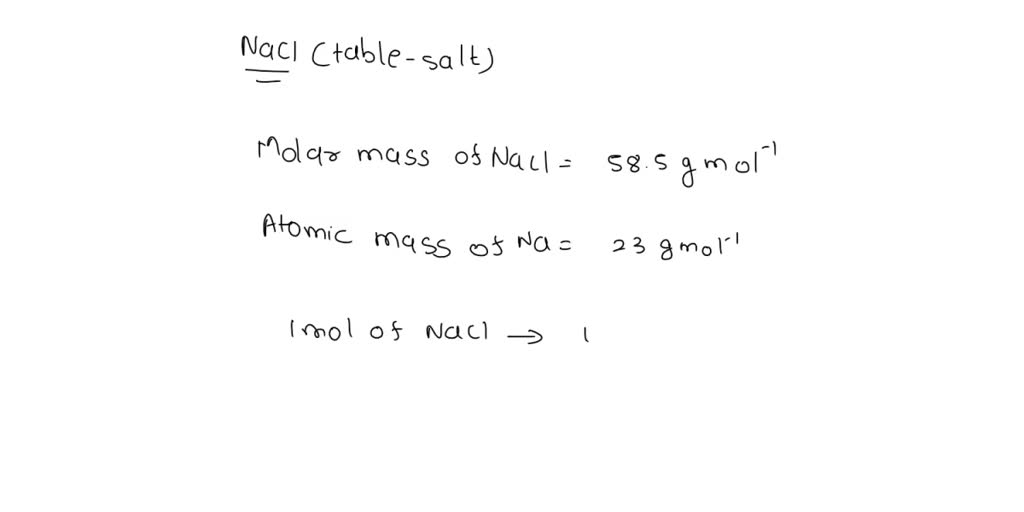 NaCl (table-salt)
Molar mass of NaCl = 58.5 g mol⁻¹
Atomic mass of Na = 23 g mol⁻¹
1 mol of NaCl → 1